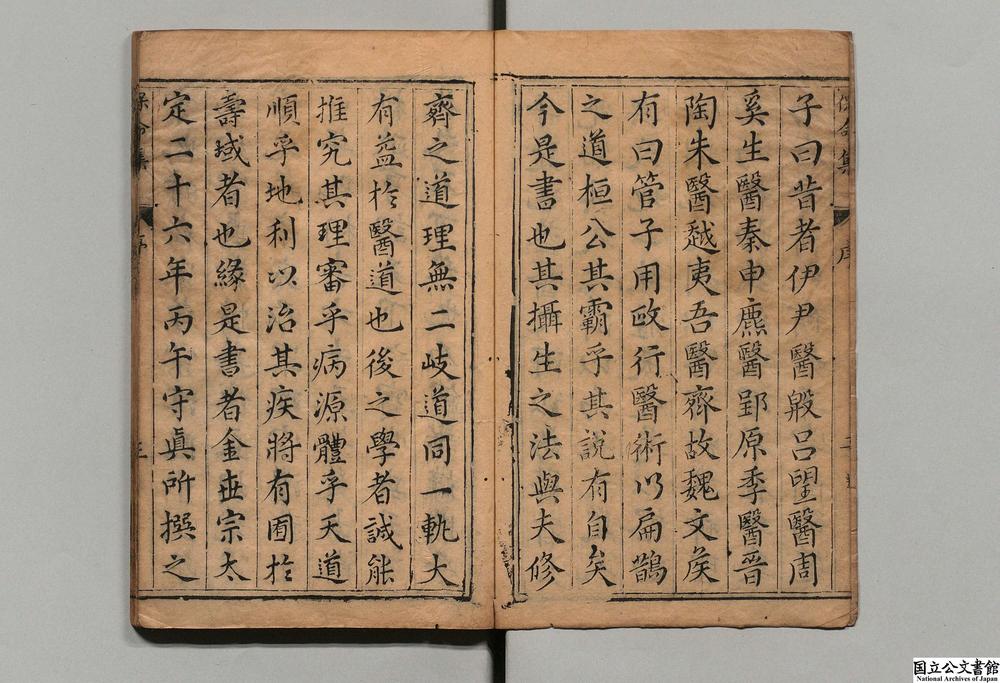 子曰昔者伊尹醫殷呂望醫周
奚生醫秦申麃醫郢原季醫晉
陶朱醫越夷吾醫齊故魏文矦
有曰管子用政行醫術以扁鵲
之道桓公其霸乎其說有自矣
今是書也其攝生之法與夫修
齊之道理無二岐道同一軌大
有益於醫道也後之學者誠能
推究其理審乎病源體乎天道
順乎地利以治其疾將有囿於
壽域者也緣是書者金世宗太
定二十六年丙午守眞所撰之
保命集
序
国立公文書館
National Archives of Japan